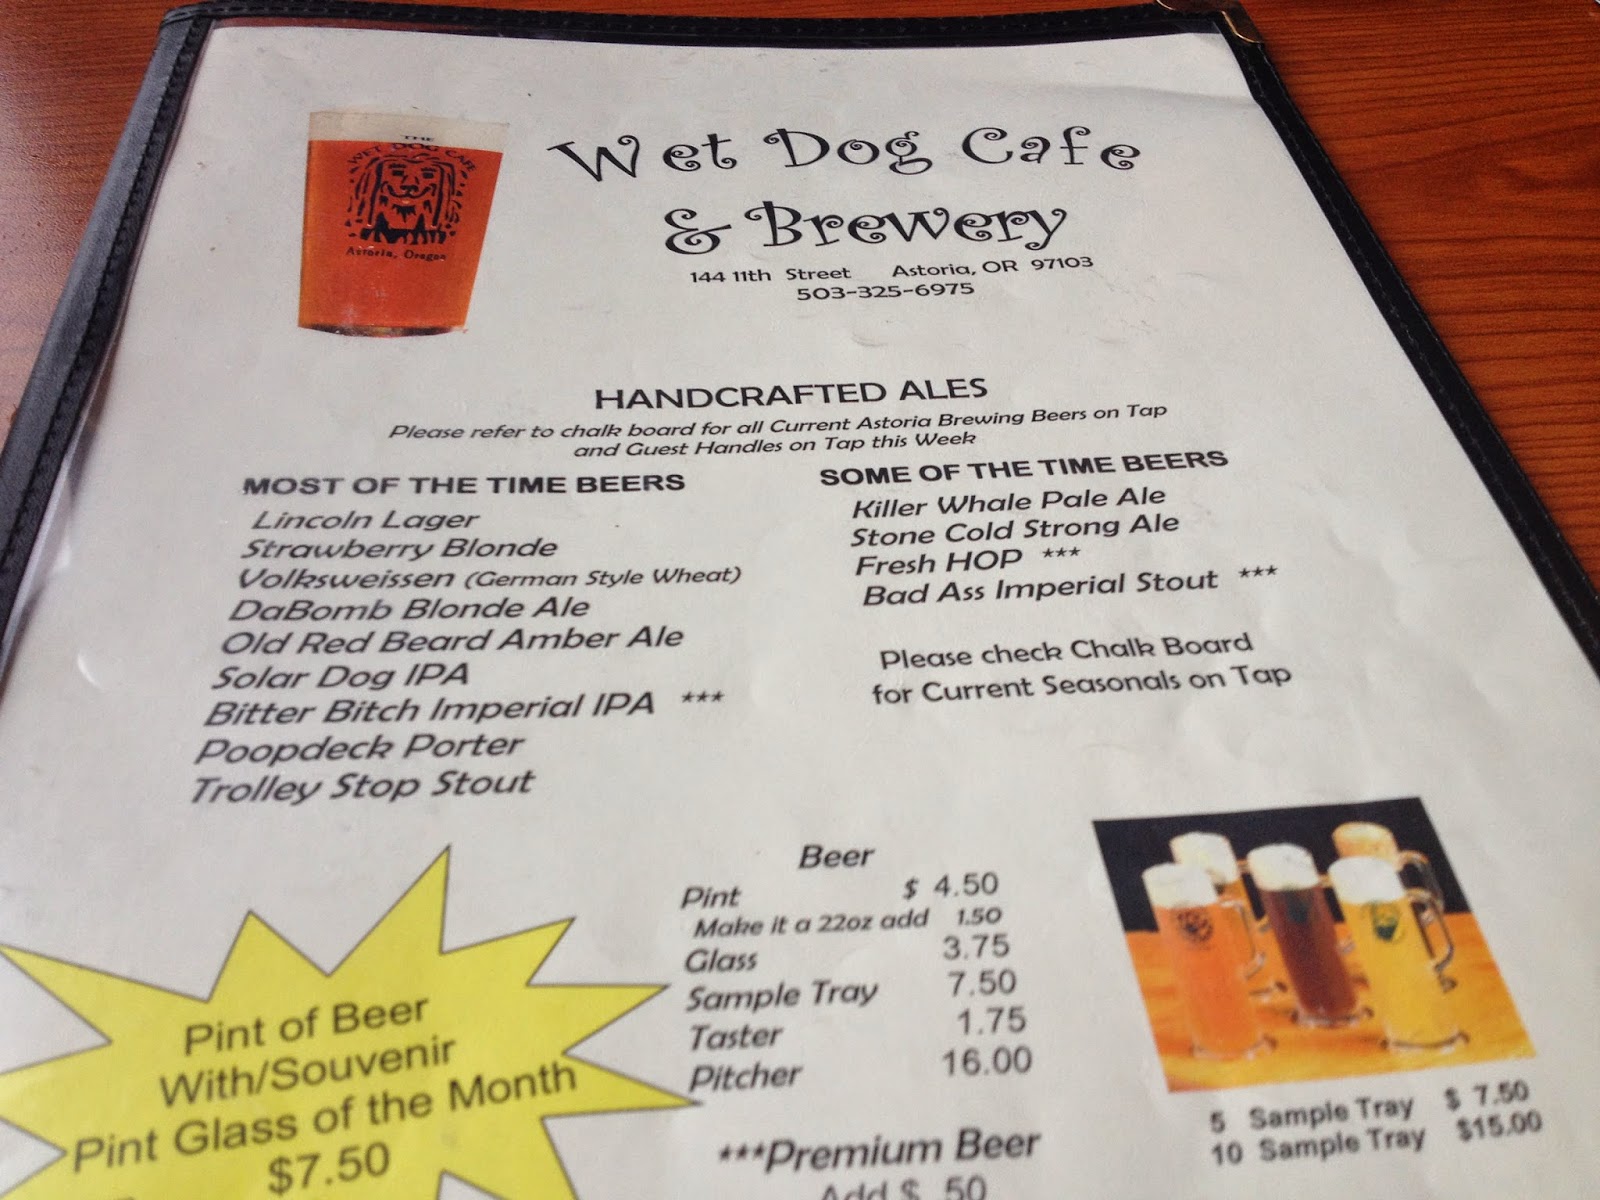 THE
WET DOG CAFE
Astoria, Oregon
Wet Dog Cafe
& Brewery
144 11th Street Astoria, OR 97103
503-325-6975
HANDCRAFTED ALES
Please refer to chalk board for all Current Astoria Brewing Beers on Tap
and Guest Handles on Tap this Week
MOST OF THE TIME BEERS
Lincoln Lager
Strawberry Blonde
Volksweissen (German Style Wheat)
DaBomb Blonde Ale
Old Red Beard Amber Ale
Solar Dog IPA
Bitter Bitch Imperial IPA ***
Poopdeck Porter
Trolley Stop Stout
SOME OF THE TIME BEERS
Killer Whale Pale Ale
Stone Cold Strong Ale
Fresh HOP ***
Bad Ass Imperial Stout ***
Please check Chalk Board
for Current Seasonals on Tap
Pint of Beer
With/Souvenir
Pint Glass of the Month
$7.50
Beer
Pint $ 4.50
Make it a 22oz add 1.50
Glass 3.75
Sample Tray 7.50
Taster 1.75
Pitcher 16.00
***Premium Beer
Add $ .50
5 Sample Tray $ 7.50
10 Sample Tray $15.00